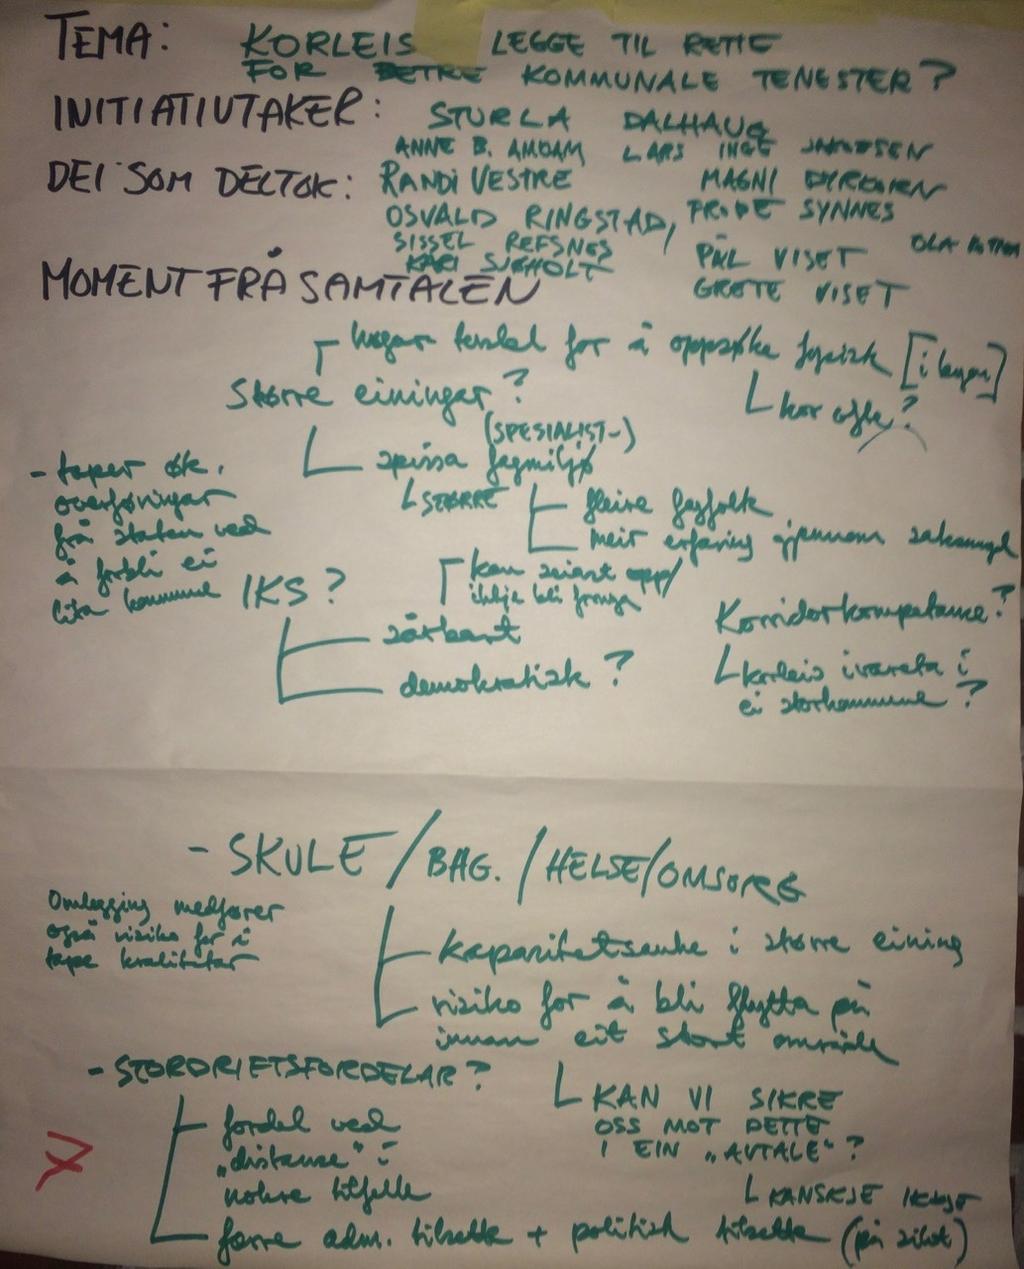 TEMA: KORLEIS LEGGE TIL RETTE
FOR BETRE KOMMUNALE TENESTER?
INITIATIVTAKER: STURLA DALHAUG
ANNE B. AMDAM LARS INGE
DEI SOM DELTOK: RANDI VESTRE MAGNI
OSVALD RINGSTAD, FRODE SYNNES
SISSEL REFSNES PÅL VISET OLA
KARI SJØHOLT GRETE VISET
MOMENT FRÅ SAMTALEN
høgar terskel for å oppsøke fysisk [i byen]
kor ofte?
Større einingar?
(SPESIALIST-)
spissa fagmiljø
STØRRE
fleire fagfolk
meir erfaring gjennom
- taper øk.
overføringar
frå staten ved
å forbli ei
lita kommune
IKS?
kan seiast opp/
ikkje bli
sårbart
demokratisk?
Korridorkompetanse?
korleis ivareta i
ei storkommune?
- SKULE/BHG./HELSE/OMSORG
Omlegging medfører
også risiko for å
tape kvalitetar
kapasitetsauke i større eining
risiko for å bli flytta på
innan eit stort område
KAN VI SIKRE
OSS MOT DETTE
I EIN „AVTALE"?
KANSKJE IKKJE
- STORDRIFTSFORDELAR?
fordel ved
„distanse" i
nokre tilfelle
færre adm. tilsette + politisk tilsette (på sikt)